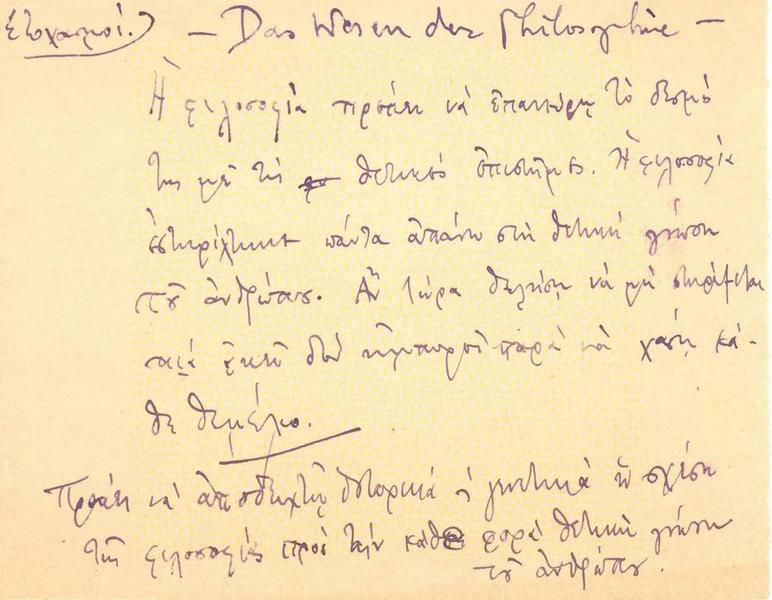 Στοχασμοί. — Das Wesen der Philosophie —
Ἡ φιλοσοφία πρέπει νὰ ἐπανεύρῃ τὸ δεσμό
της μὲ τὶς θετικὲς ἐπιστῆμες. Ἡ φιλοσοφία
ἐστηρίχτηκε πάντα ἀπάνω στὴ θετικὴ γνώση
τοῦ ἀνθρώπου. Ἂν τώρα θελήσῃ νὰ μὴ στηρίζεται
σ' αὐτὴ δὲν παρὰ νὰ χάσῃ κά-
θε θεμέλιο.
Πρέπει νὰ ἀποδειχτῇ ἱστορικὰ ἡ γενετικὰ ἡ σχέση
τῆς φιλοσοφίας πρὸς τὴν κάθε φορὰ θετικὴ γνώση
τοῦ ἀνθρώπου.